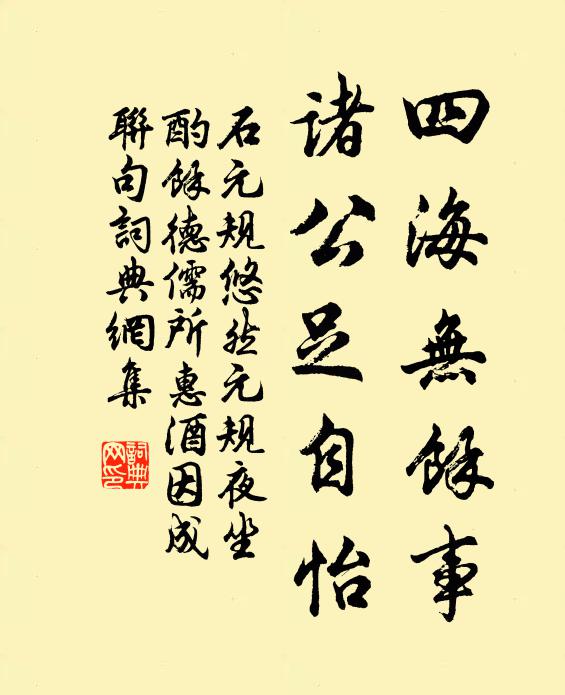 四海無餘事
諸公足自怡
石元規悠然元規夜坐
酌餘德儒所惠酒因成
聯句詞典網集
詞典
网印